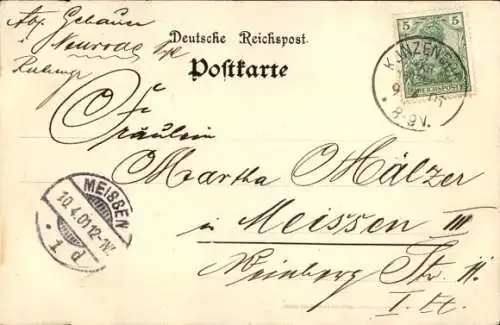 Abs. Gebauer
Neurode
Deutsche Reichspost.
Postkarte
5 5
REICHSPOST
9 4 01
8-9V.
Fräulein
Martha Mälzer
in Meissen III
MEISSEN
10.4.01.12-1N.
1 d
Weinberg Str. 11.
I. Et.